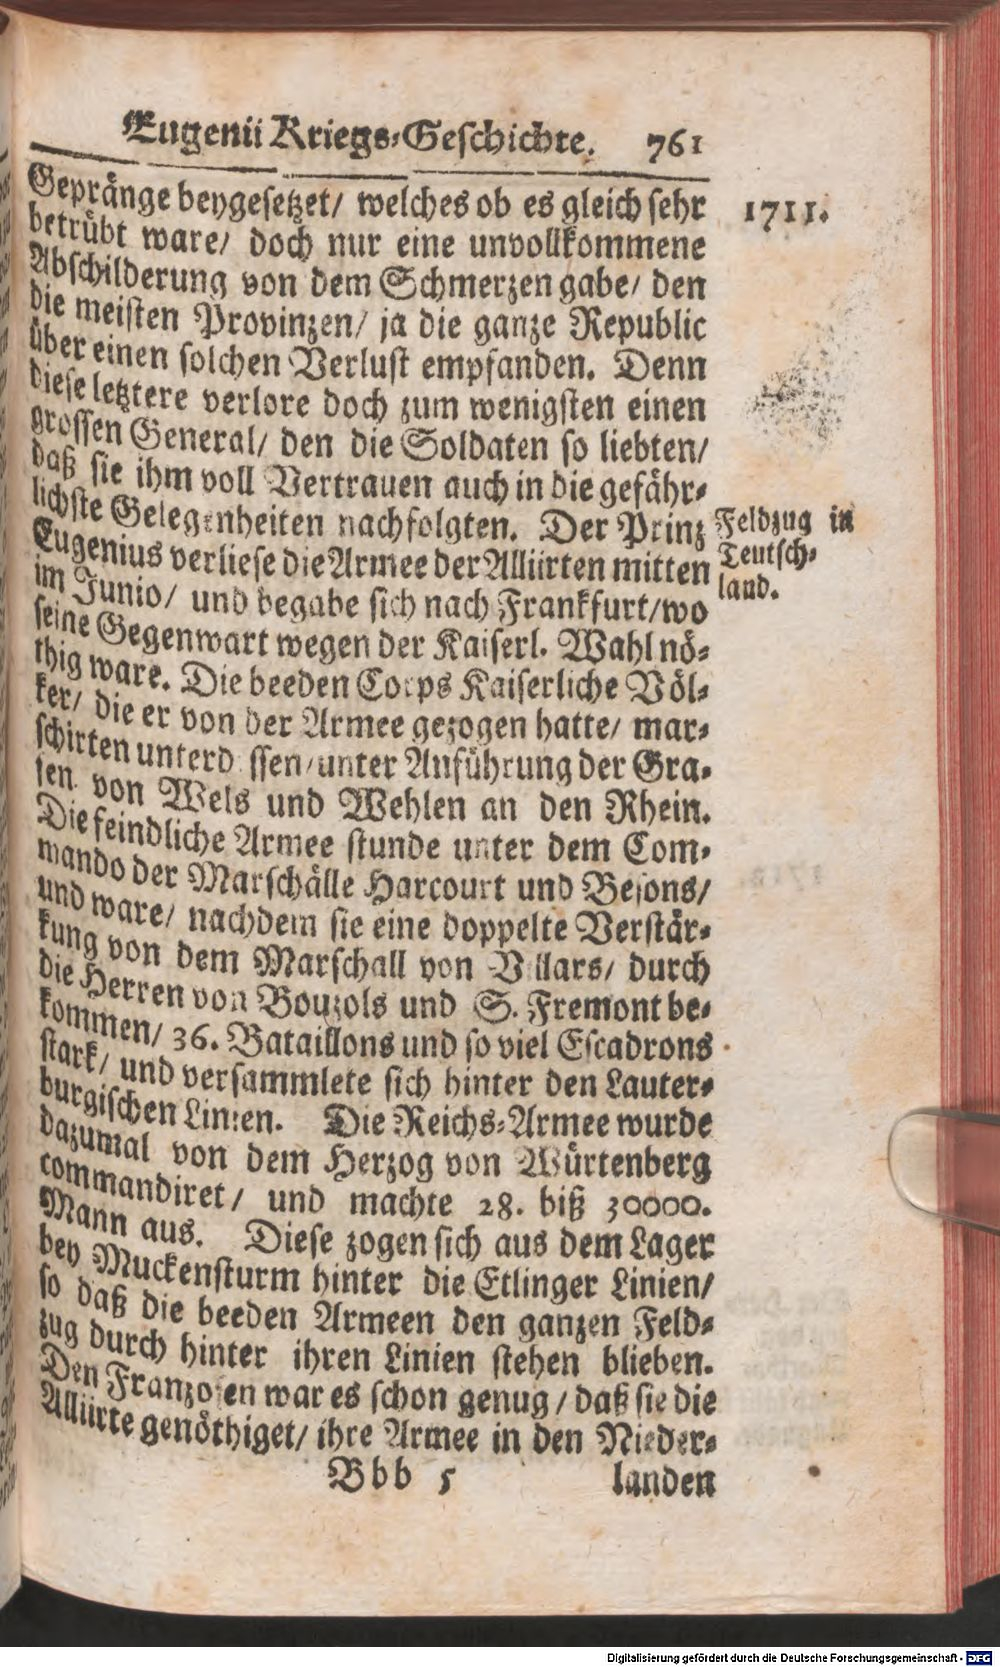 Eugenii Kriegs-Geschichte. 761
Gepränge beygesetzet/ welches ob es gleich sehr
betrübt ware/ doch nur eine unvollkommene
Abschilderung von dem Schmerzen gabe/ den
die meisten Provinzen/ ja die ganze Republic
über einen solchen Verlust empfanden. Denn
diese letztere verlore doch zum wenigsten einen
grossen General/ den die Soldaten so liebten/
daß sie ihm voll Vertrauen auch in die gefähr-
lichste Gelegenheiten nachfolgten. Der Prinz
Eugenius verliese die Armee der Alliirten mitten
im Junio/ und begabe sich nach Frankfurt/ wo
seine Gegenwart wegen der Kaiserl. Wahl nö-
thig ware. Die beeden Corps Kaiserliche Völ-
ker/ die er von der Armee gezogen hatte/ mar-
schirten unterdessen/ unter Anführung der Gra-
fen von Wels und Wehlen an den Rhein.
Die feindliche Armee stunde unter dem Com-
mando der Marschälle Harcourt und Besons/
und ware/ nachdem sie eine doppelte Verstär-
kung von dem Marschall von Villars/ durch
die Herren von Bouzols und S. Fremont be-
kommen/ 36. Bataillons und so viel Escadrons
stark/ und versammlete sich hinter den Lauter-
burgischen Linien. Die Reichs-Armee wurde
dazumal von dem Herzog von Würtenberg
commandiret/ und machte 28. biß 30000.
Mann aus. Diese zogen sich aus dem Lager
bey Muckensturm hinter die Etlinger Linien/
so daß die beeden Armeen den ganzen Feld-
zug durch hinter ihren Linien stehen blieben.
Den Franzosen war es schon genug/ daß sie die
Alliirte genöthiget/ ihre Armee in den Nieder-
Bbb 5 landen
1711.
Feldzug in
Teutsch-
land.
Digitalisierung gefördert durch die Deutsche Forschungsgemeinschaft - DFG